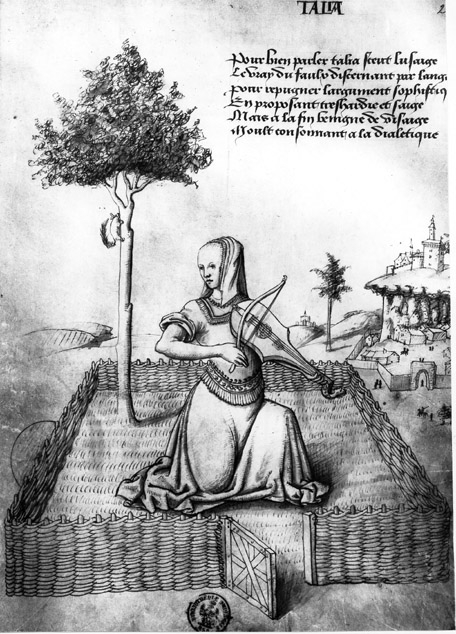 TALIA
2
Pour bien parler talia sceut lusaige
Le vray du faulx discernant par langa
pour repugner largument sophistiq
En proposant treshardie et saige
Mais a la fin benigne de visaige
Moult consonnant a la dialetique